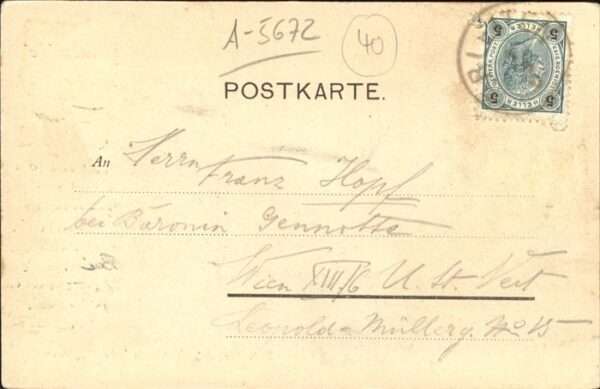 A-5672
40
POSTKARTE.
An Herrn
Franz Hopf
bei Baronin Gennotte
Wien XIII/6 U. St. Veit
Leopold-Müllerg. No 15
5 5
5 5
HELLER